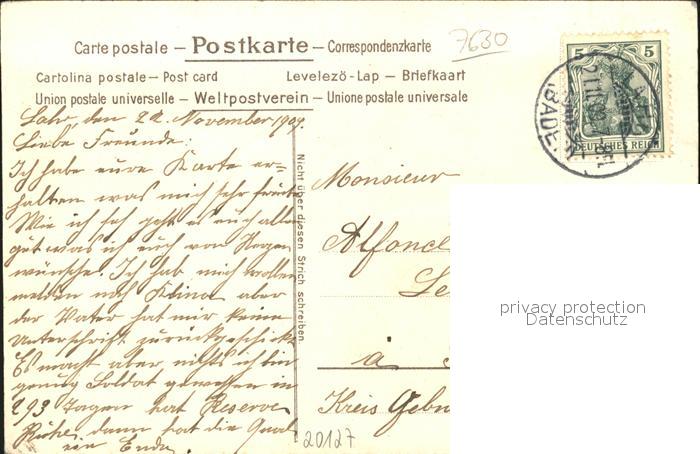 Carte postale — Postkarte — Correspondenzkarte
7630
Cartolina postale — Post card Levelező-Lap — Briefkaart
Union postale universelle — Weltpostverein — Unione postale universale
5 5
DEUTSCHES REICH
(BADEN)
Lahr, den 2ten November 1909.
Liebe Freunde:
Ich habe eure Karte er-
halten was mich sehr freute
Wie ich seh geht es euch allen
gut was ich euch von Herzen
wünsche. Ich hab mich wollen
melden nach Kiina aber
der Vater hat mir keine
Unterschrift zurückgeschickt
Es macht aber nichts ich bin
genug Soldat gewesen in
293 Tagen hat Reserve
Ruhe, dann hat die Qual
ein Ende.
Nicht über diesen Strich schreiben.
Monsieur
Alfonce
à
Kreis Gebw
20127
privacy protection
Datenschutz